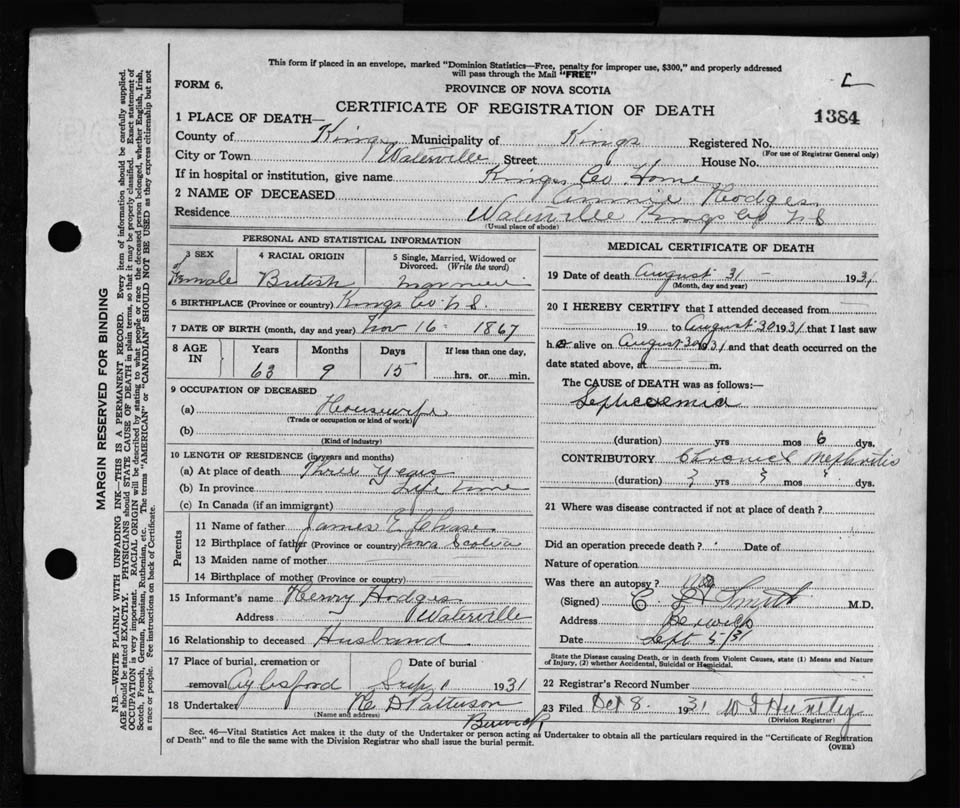 This form if placed in an envelope, marked "Dominion Statistics—Free, penalty for improper use, $300," and properly addressed
will pass through the Mail "FREE"
FORM 6.
PROVINCE OF NOVA SCOTIA
L
CERTIFICATE OF REGISTRATION OF DEATH
1384
1 PLACE OF DEATH—
County of Kings Municipality of Kings Registered No.
(For use of Registrar General only)
City or Town Waterville Street House No.
If in hospital or institution, give name Kings Co Home
2 NAME OF DECEASED Annie Hodges
Residence Waterville Kings Co N S
(Usual place of abode)
PERSONAL AND STATISTICAL INFORMATION
3 SEX 4 RACIAL ORIGIN 5 Single, Married, Widowed or
Divorced. (Write the word)
Female British Married
6 BIRTHPLACE (Province or country) Kings Co N S.
7 DATE OF BIRTH (month, day and year) Nov 16 1867
8 AGE IN Years Months Days If less than one day,
63 9 15 hrs. or min.
9 OCCUPATION OF DECEASED
(a) Housewife
(Trade or occupation or kind of work)
(b)
(Kind of industry)
10 LENGTH OF RESIDENCE (in years and months)
(a) At place of death Three Years
(b) In province Life time
(c) In Canada (if an immigrant)
Parents
11 Name of father James E Chase
12 Birthplace of father (Province or country) Nova Scotia
13 Maiden name of mother
14 Birthplace of mother (Province or country)
15 Informant's name Henry Hodges
Address Waterville
16 Relationship to deceased Husband
17 Place of burial, cremation or Date of burial
removal Aylesford Sep 1 1931
18 Undertaker H D Patterson
(Name and address)
Berwick
MEDICAL CERTIFICATE OF DEATH
19 Date of death August 31 - 1931
(Month, day and year)
20 I HEREBY CERTIFY that I attended deceased from
19 to August 30 1931 that I last saw
h alive on August 30 1931 and that death occurred on the
date stated above, at m.
The CAUSE of DEATH was as follows:—
Septicaemia
(duration) yrs mos 6 dys.
CONTRIBUTORY Chronic Nephritis
(duration) ? yrs ? mos ? dys.
21 Where was disease contracted if not at place of death?
Did an operation precede death? Date of
Nature of operation
Was there an autopsy? No
(Signed) Smith M.D.
Address Berwick
Date Sept 5/31
State the Disease causing Death, or in death from Violent Causes, state (1) Means and Nature
of Injury, (2) whether Accidental, Suicidal or Homicidal.
22 Registrar's Record Number
23 Filed Oct 8. 1931 W Huntley
(Division Registrar)
Sec. 46—Vital Statistics Act makes it the duty of the Undertaker or person acting as Undertaker to obtain all the particulars required in the "Certificate of Registration
of Death" and to file the same with the Division Registrar who shall issue the burial permit.
(OVER)
MARGIN RESERVED FOR BINDING
N.B.—WRITE PLAINLY WITH UNFADING INK—THIS IS A PERMANENT RECORD. Every item of information should be carefully supplied.
AGE should be stated EXACTLY. PHYSICIANS should STATE CAUSE OF DEATH in plain terms, so that it may be properly classified. Exact statement of
OCCUPATION is very important. RACIAL ORIGIN will be described by stating to what people or race the deceased person belonged, whether English, Irish,
Scotch, French, German, Russian, Ruthenian, etc. The terms "AMERICAN" or "CANADIAN" SHOULD NOT BE USED as they express citizenship but not
a race or people. See instructions on back of Certificate.